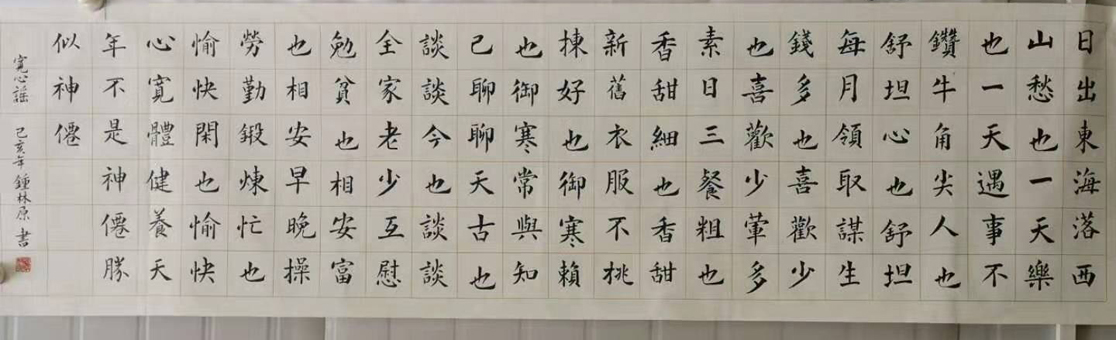 日出東海落西
山愁也一天樂
也一天遇事不
鑽牛角尖人也
舒坦心也舒坦
每月領取謀生
錢多也喜歡少
也喜歡少葷多
素日三餐粗也
香甜細也香甜
新舊衣服不桃
揀好也御寒賴
也御寒常與知
己聊聊天古也
談談今也談談
全家老少互慰
勉貧也相安富
也相安早晚操
勞勤鍛煉忙也
愉快閑也愉快
心寬體健養天
年不是神僊勝
似神僊
寬心謠 己亥年鍾林原書